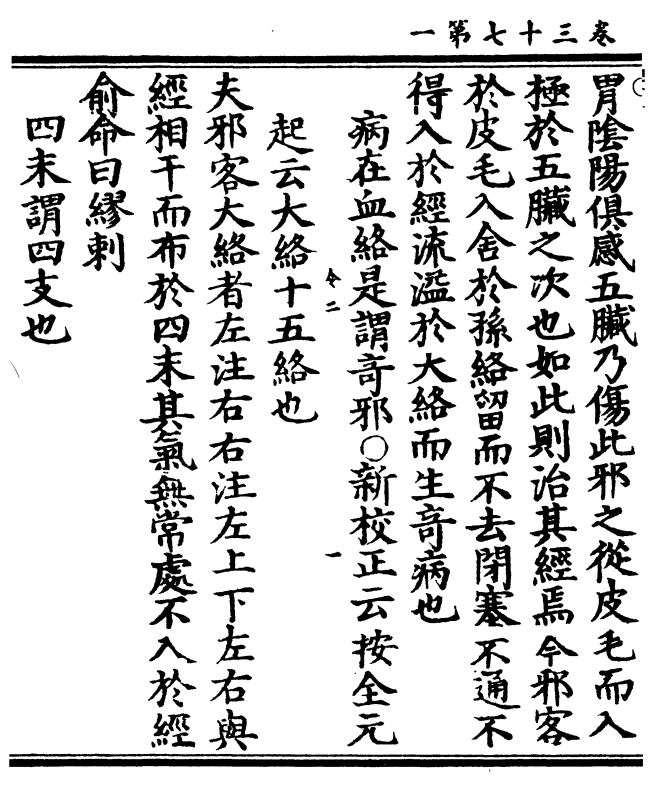 卷三十七第一
胃陰陽俱感五臟乃傷此邪之從皮毛而入
極於五臟之次也如此則治其經焉今邪客
於皮毛入舍於孫絡留而不去閉塞不通不
得入於經流溢於大絡而生奇病也
病在血絡是謂奇邪○新校正云按全元
起云大絡十五絡也
夫邪客大絡者左注右右注左上下左右與
經相干而布於四末其氣無常處不入於經
俞命曰繆刺
四末謂四支也